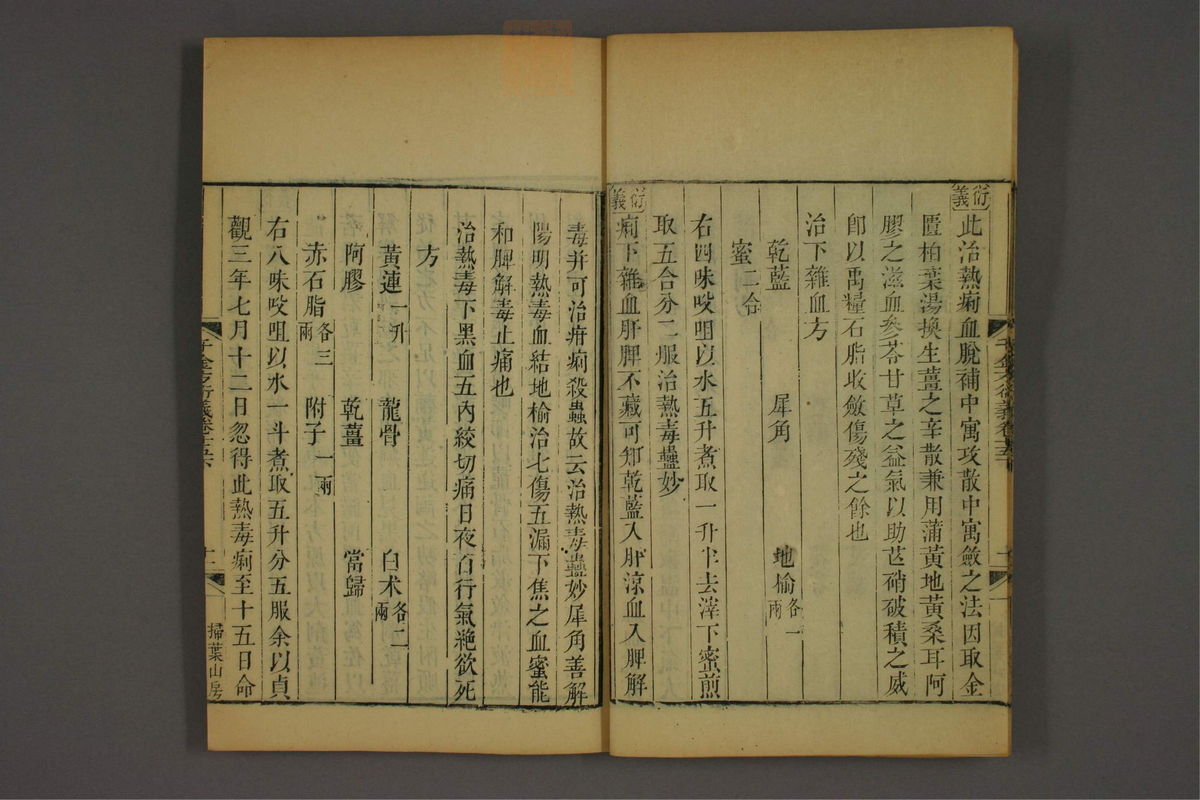 衍義此治熱痢血脫補中寓攻散中寓斂之法因取金
匱柏葉湯換生薑之辛散兼用蒲黃地黃桑耳阿
膠之滋血參苓甘草之益氣以助芒硝破積之威
卽以禹糧石脂收斂傷殘之餘也
治下雜血方
乾藍 犀角 地榆各一兩
蜜二合
右四味㕮咀以水五升煮取一升半去滓下蜜煎
取五合分二服治熱毒蠱妙
衍義痢下雜血肝脾不藏可知乾藍入肝涼血入脾解
毒并可治疳痢殺蟲故云治熱毒蠱妙犀角善解
陽明熱毒血結地榆治七傷五漏下焦之血蜜能
和脾解毒止痛也
治熱毒下黑血五內絞切痛日夜百行氣絕欲死
方
黃連一升 龍骨 白术各二兩
阿膠 乾薑 當歸
赤石脂各三兩 附子一兩
右八味㕮咀以水一斗煮取五升分五服余以貞
觀三年七月十二日忽得此熱毒痢至十五日命
千金方衍義卷十五
掃葉山房